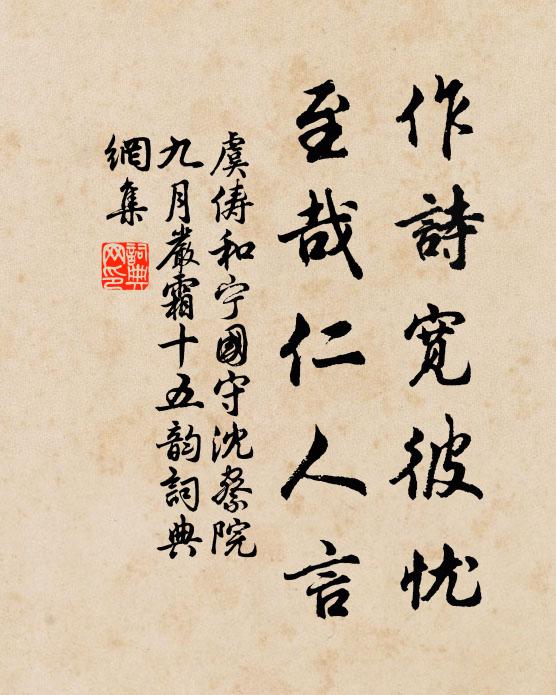 作詩寬彼忧
至哉仁人言
虞俦和宁國守沈察院
九月嚴霜十五韵詞典
網集
詞典
网印